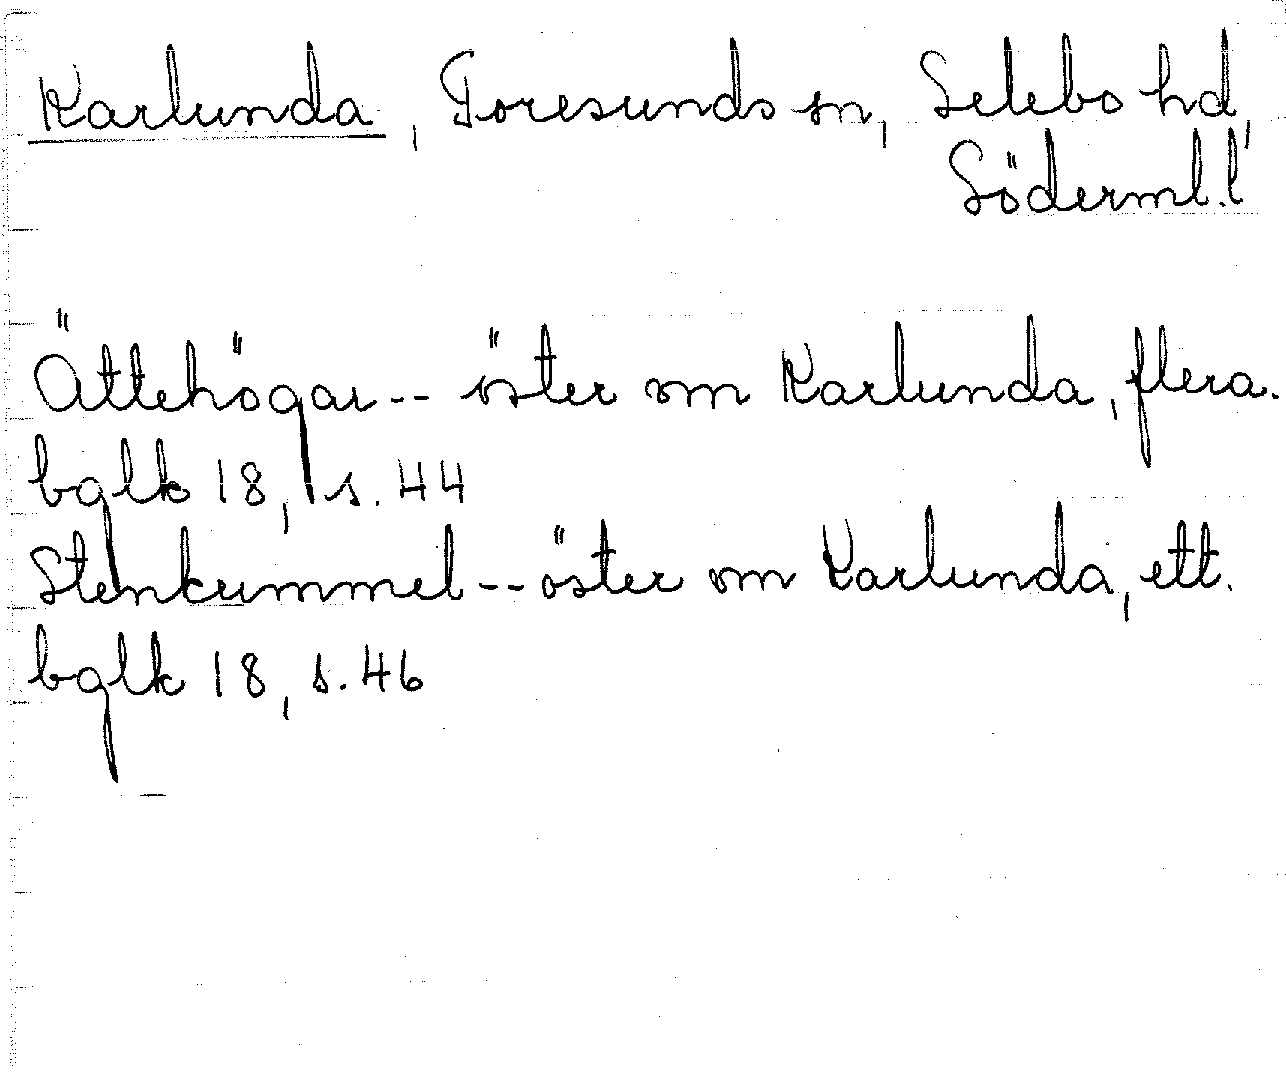 Karlunda, Toresunds sn, Selebo hd,
Söderml. l
Ättehögar -- öster om Karlunda, flera.
bglk 18, s. 44
Stenkummel -- öster om Karlunda, ett.
bglk 18, s. 46